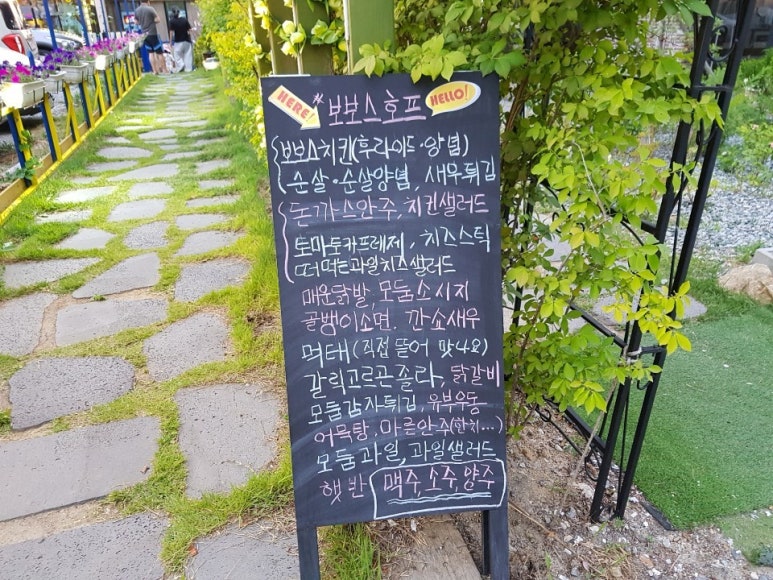 HERE! *보보스호프 HELLO!
보보스치킨(후라이드·양념)
순살·순살양념, 새우튀김
돈까스안주, 치킨샐러드
토마토카프레제, 치즈스틱
떠먹는과일치즈샐러드
매운닭발, 모둠소시지
골뱅이소면. 깐쇼새우
먹태(직접 뜯어 맛나요)
갈릭고르곤졸라, 닭갈비
모둠감자튀김, 유부우동
어묵탕, 마른안주(한치...)
모둠과일, 과일샐러드
햇반 맥주, 소주, 양주